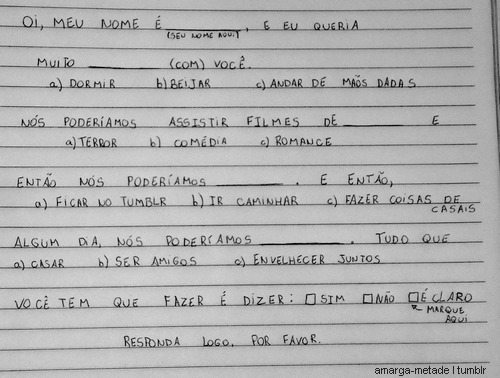 OI, MEU NOME É ____________, E EU QUERIA
(SEU NOME AQUI)
MUITO __________ (COM) VOCÊ.
a) DORMIR b) BEIJAR c) ANDAR DE MÃOS DADAS
NÓS PODERÍAMOS ASSISTIR FILMES DE __________ E
a) TERROR b) COMÉDIA c) ROMANCE
ENTÃO NÓS PODERÍAMOS __________. E ENTÃO,
a) FICAR NO TUMBLR b) IR CAMINHAR c) FAZER COISAS DE
CASAIS
ALGUM DIA, NÓS PODERÍAMOS ____________. TUDO QUE
a) CASAR b) SER AMIGOS c) ENVELHECER JUNTOS
VOCÊ TEM QUE FAZER É DIZER: □ SIM □ NÃO □ É CLARO
MARQUE
AQUI
RESPONDA LOGO, POR FAVOR.
amarga-metade | tumblr